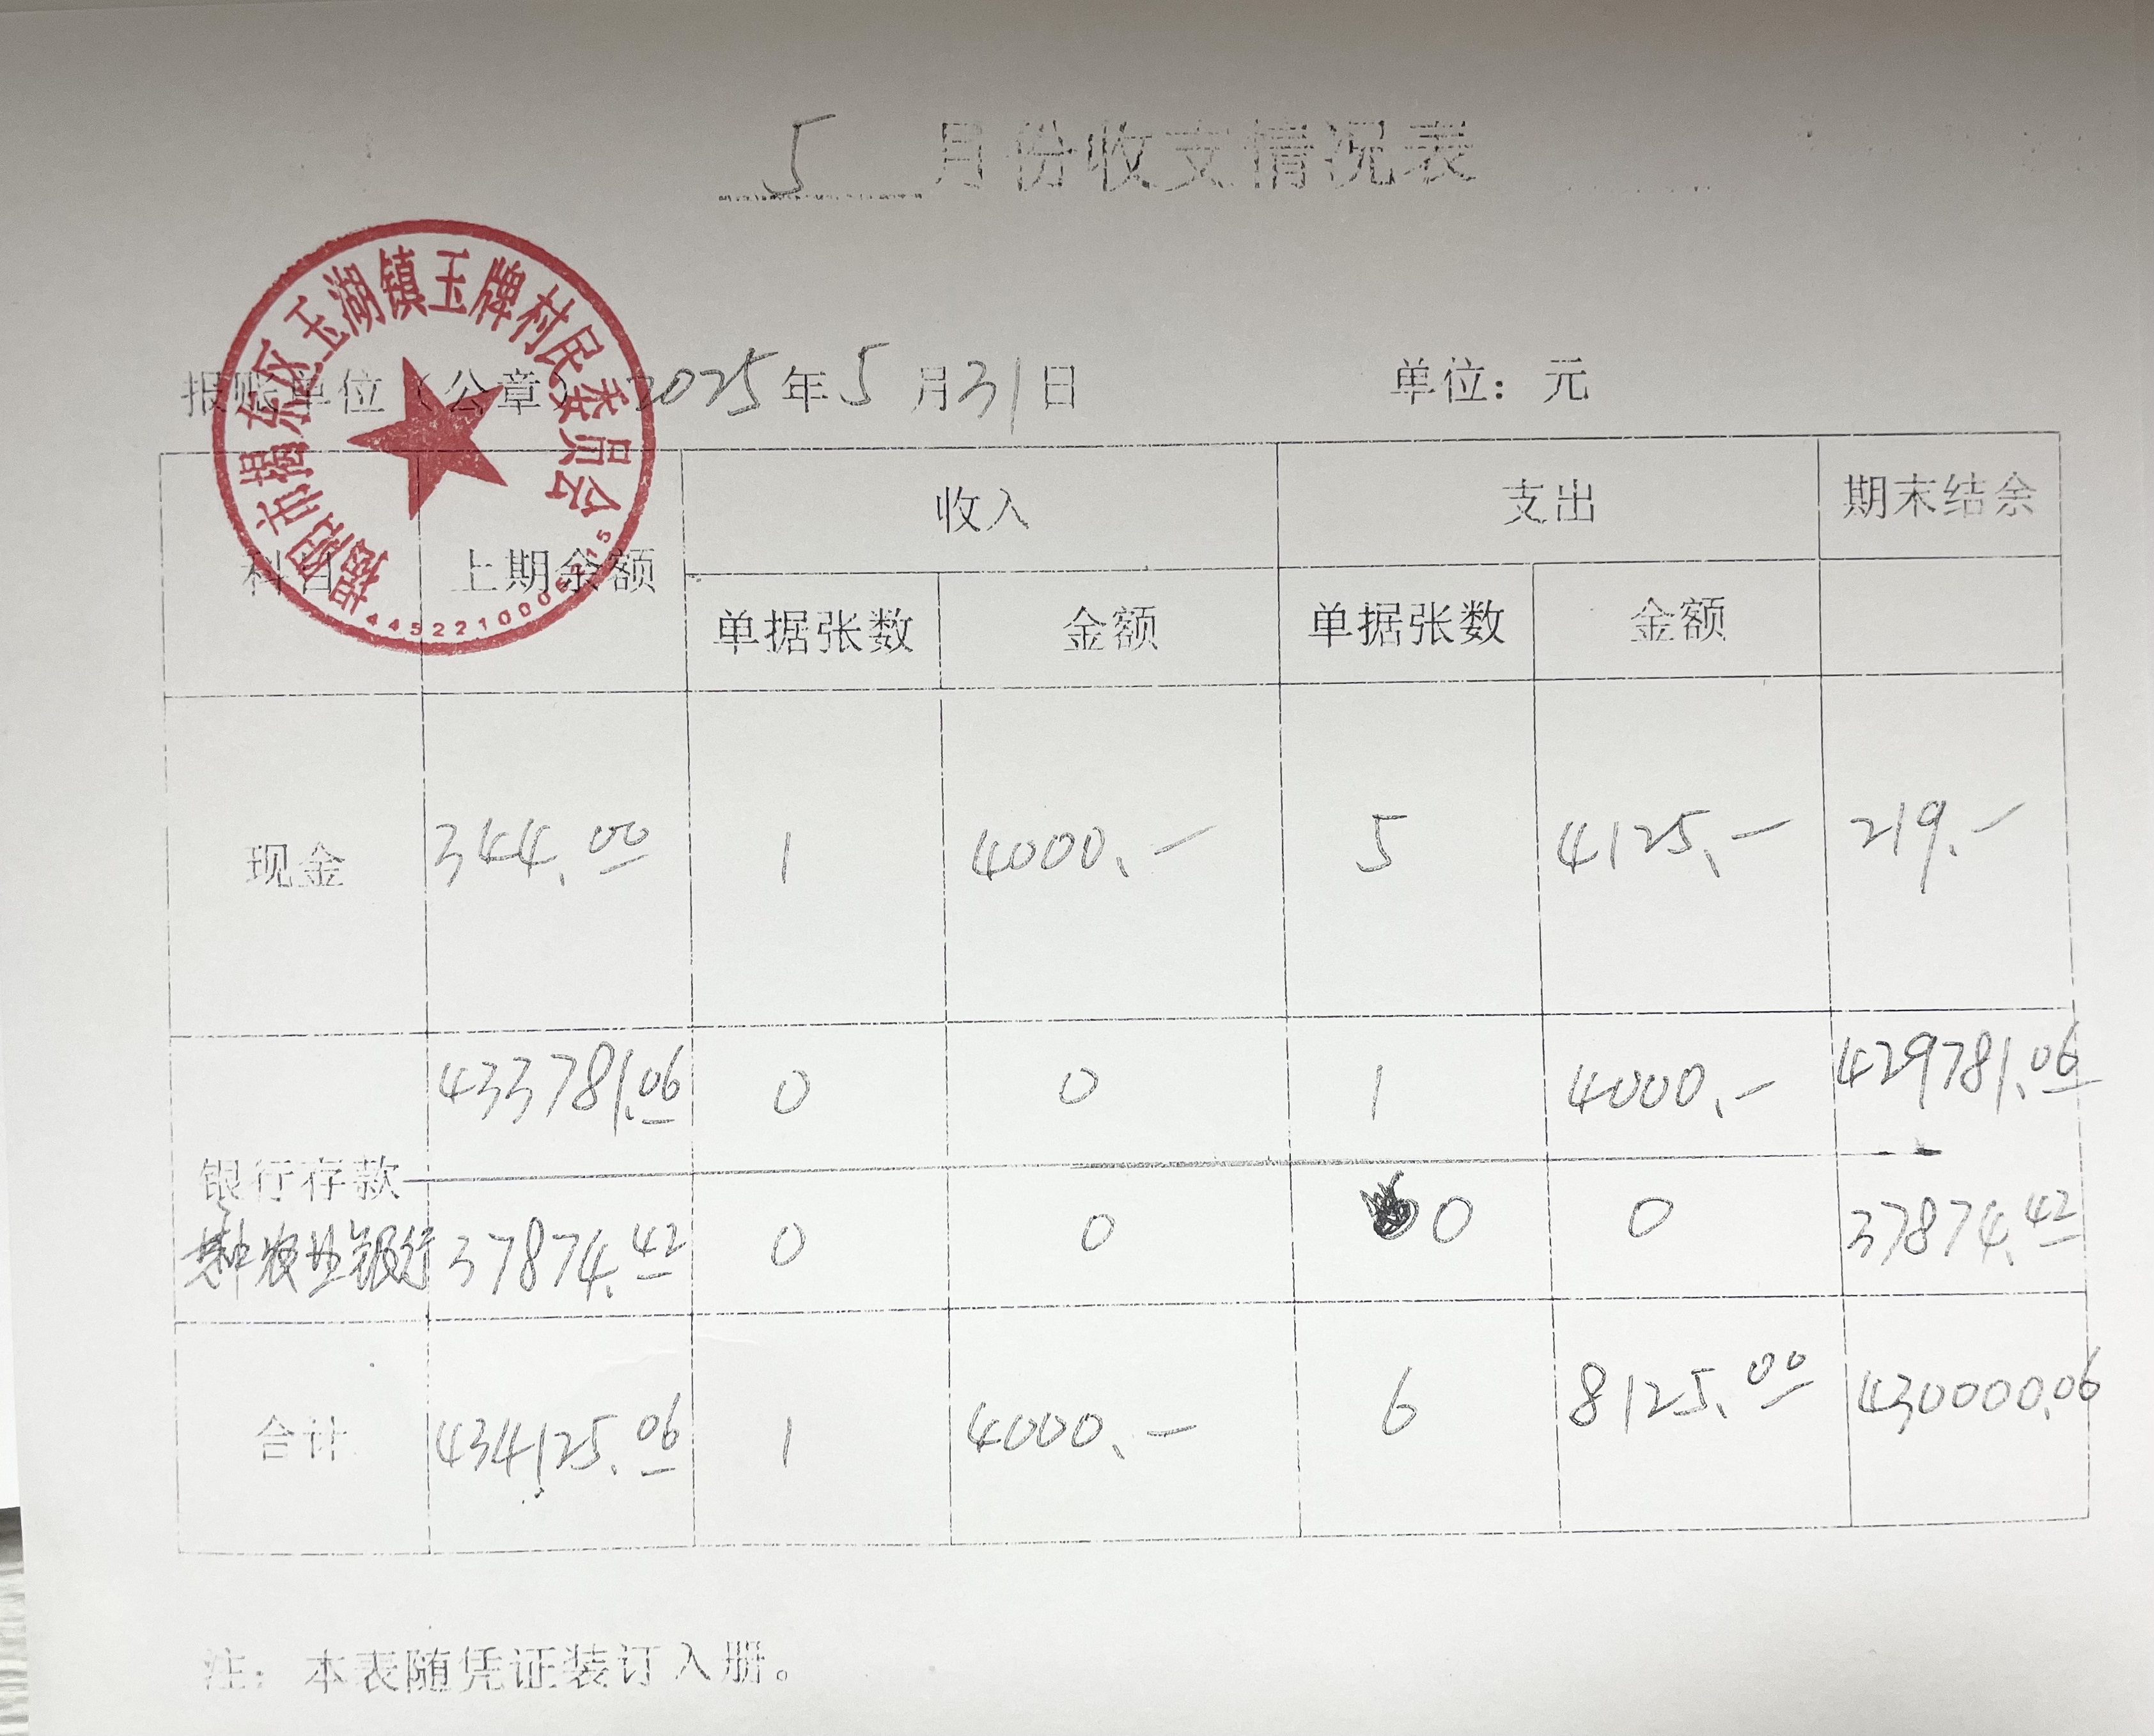 5 月份收支情况表
揭阳市揭东区玉湖镇玉牌村民委员会
报账单位（公章） 2025年5月31日 单位：元
科目 上期余额 收入 支出 期末结余
单据张数 金额 单据张数 金额
现金 344.00 1 4000.— 5 4125.— 219.—
433781.06 0 0 1 4000.— 429781.06
银行存款
农业银行 37874.42 0 0 0 0 37874.42
合计 434125.06 1 4000.— 6 8125.00 430000.06
注：本表随凭证装订入册。